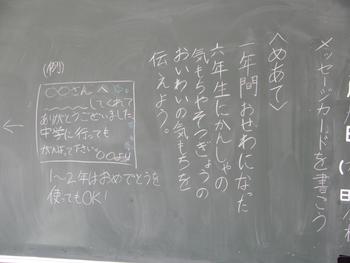 メッセージカードを書こう
〈めあて〉
一年間おせわになった
六年生にかんしゃの
気もちやそつぎょうの
おいわいの気もちを
伝えよう。
(例)
〇〇さんへ
〜〜〜〜してくれて
ありがとうございました。
中学に行っても
がんばって下さい。
〇〇より
1〜2年はおめでとうを
使ってもOK!